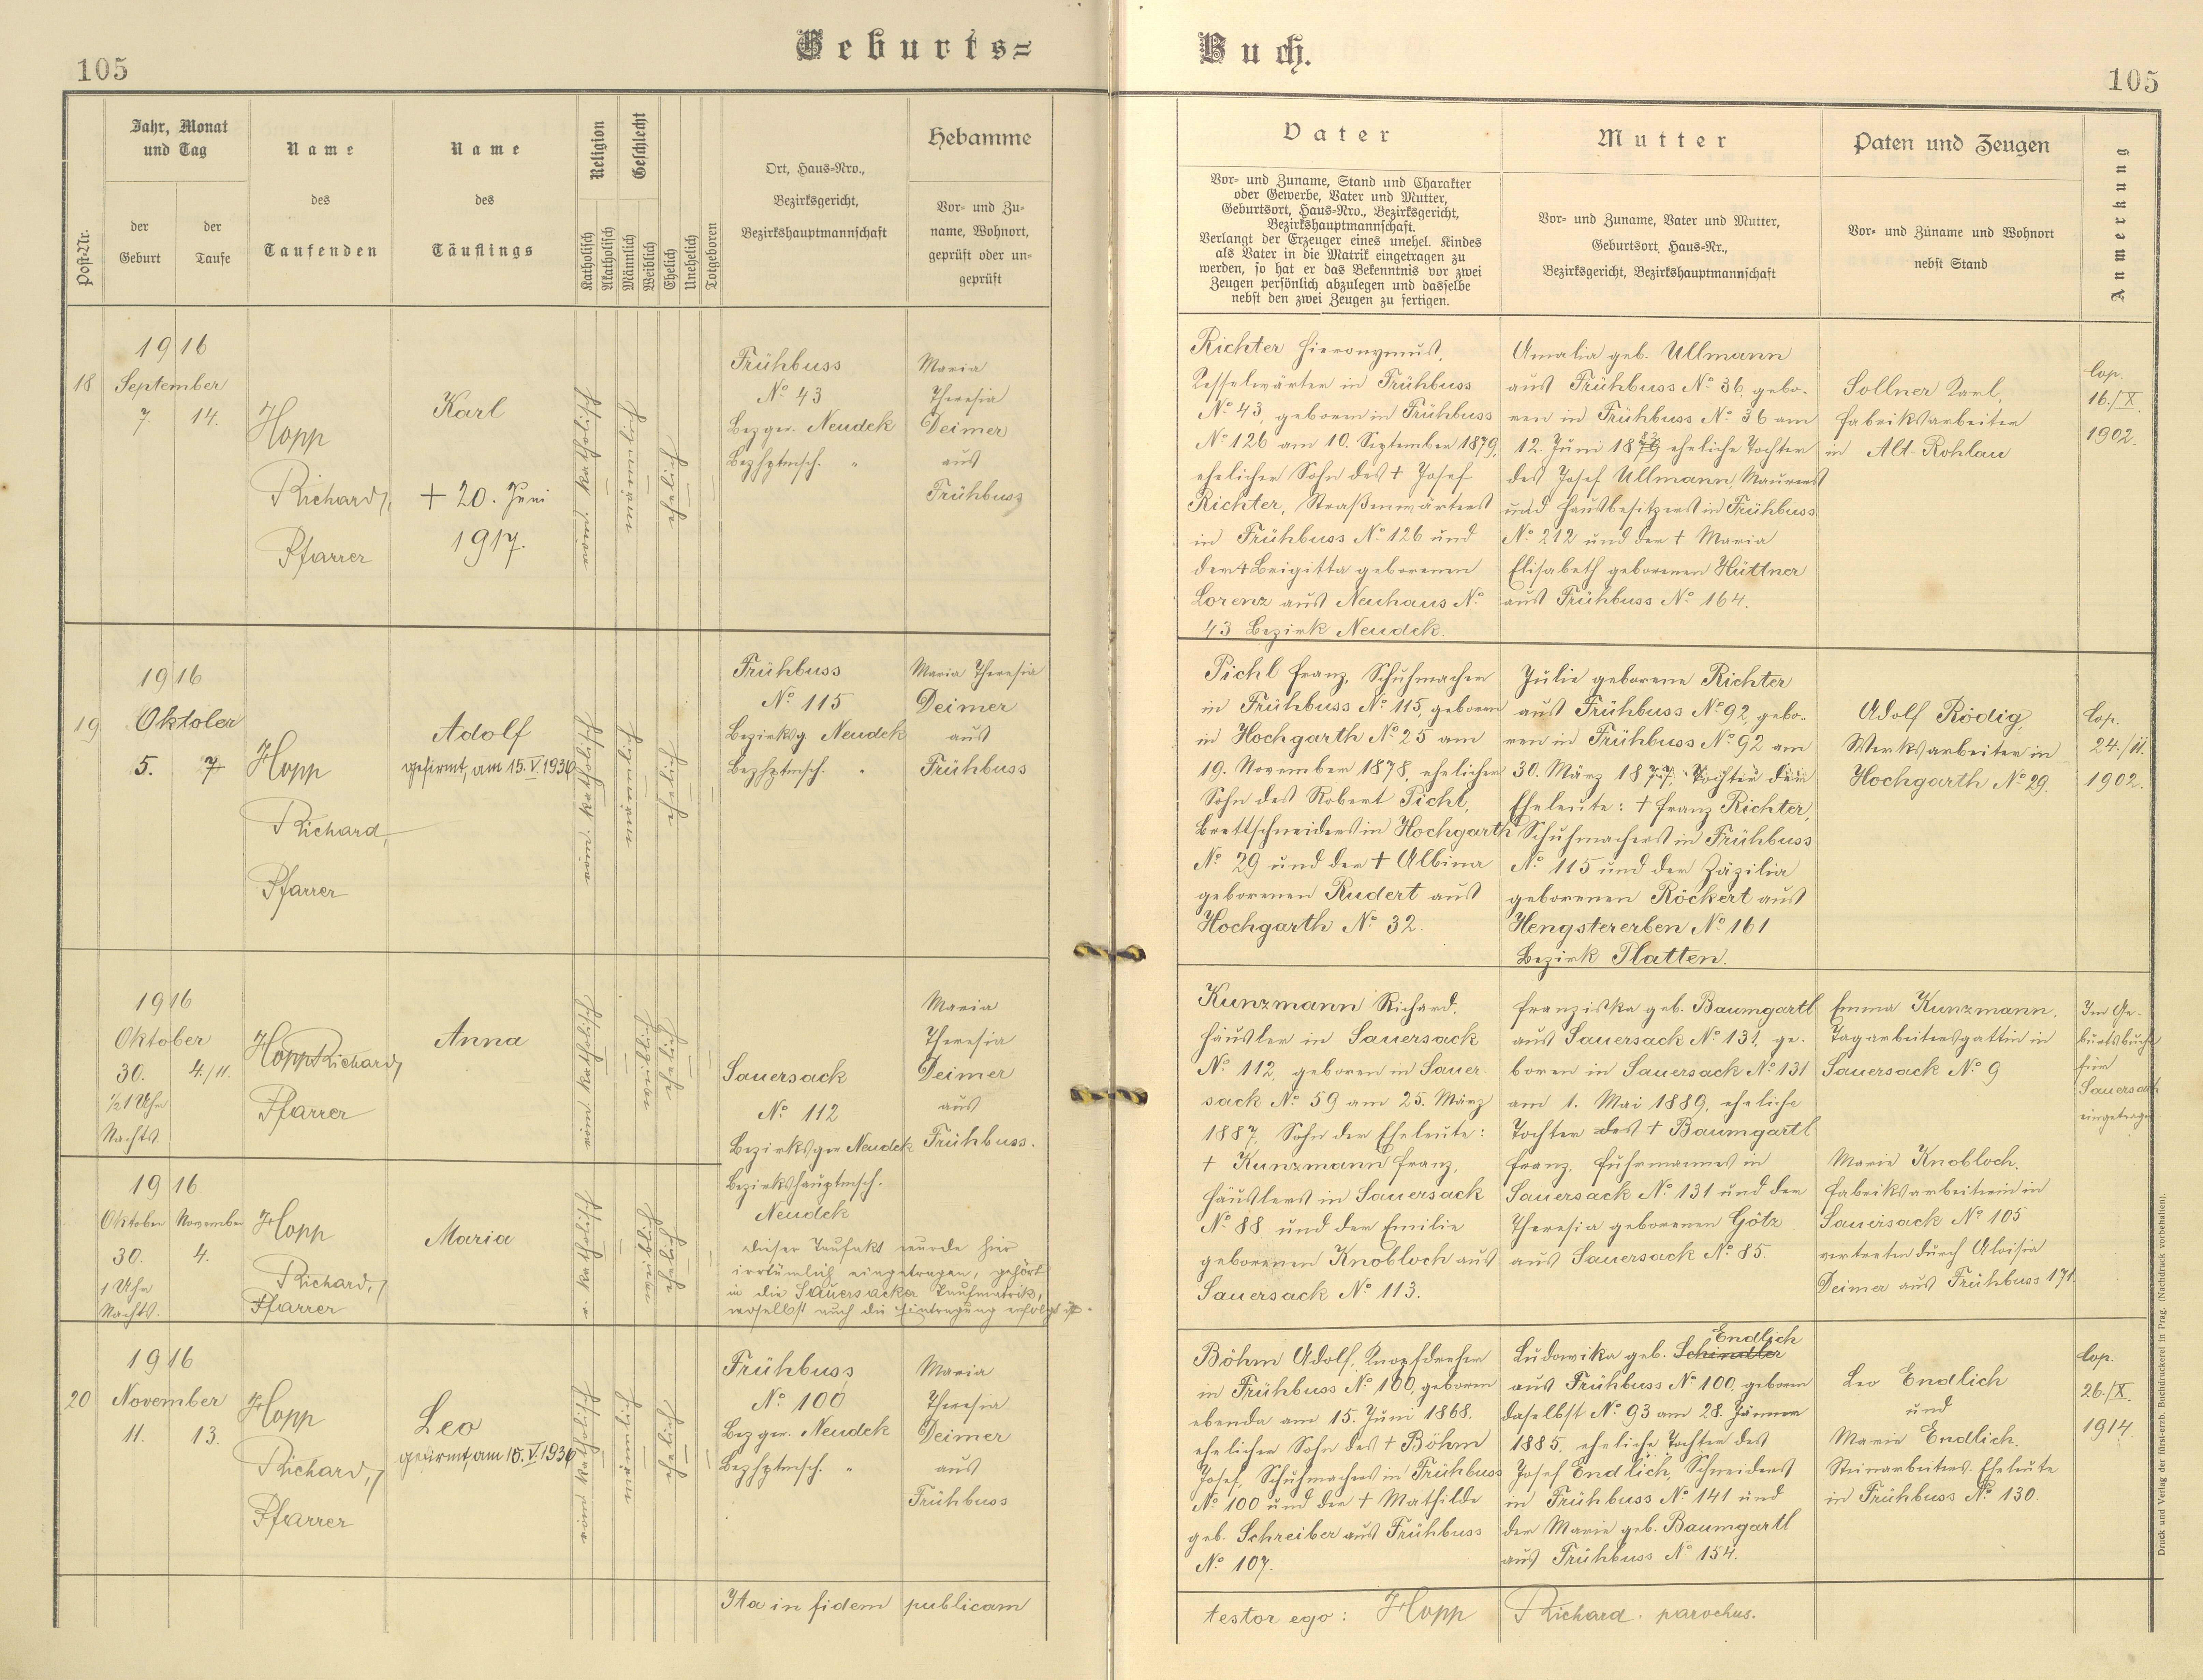 105
Geburts=
Buch.
105
Post-Nr.
Jahr, Monat
und Tag
der
Geburt
der
Taufe
Name
des
Taufenden
Name
des
Täuflings
Religion
Katholisch
Akatholisch
Geschlecht
Männlich
Weiblich
Ehelich
Unehelich
Totgeboren
Ort, Haus-Nro.,
Bezirksgericht,
Bezirkshauptmannschaft
Hebamme
Vor- und Zu-
name, Wohnort,
geprüft oder un-
geprüft
Vater
Vor- und Zuname, Stand und Charakter
oder Gewerbe, Vater und Mutter,
Geburtsort, Haus-Nro., Bezirksgericht,
Bezirkshauptmannschaft.
Verlangt der Erzeuger eines unehel. Kindes
als Vater in die Matrik eingetragen zu
werden, so hat er das Bekenntnis vor zwei
Zeugen persönlich abzulegen und dasselbe
nebst den zwei Zeugen zu fertigen.
Mutter
Vor- und Zuname, Vater und Mutter,
Geburtsort, Haus-Nr.,
Bezirksgericht, Bezirkshauptmannschaft
Paten und Zeugen
Vor- und Zuname und Wohnort
nebst Stand
Anmerkung
18
1916
September
7. 14.
Hopp
Richard,
Pfarrer
Karl
+ 20. Juni
1917.
röm. katholisch
männlich
ehelich
Frühbuss
No 43
Bezger. Neudek
Bezhptmsch. "
Maria
Theresia
Deimer
aus
Frühbuss
Richter Hieronymus,
Kesselwärter in Frühbuss
No 43, geboren in Frühbuss
No 126 am 10. September 1879,
ehelicher Sohn des + Josef
Richter, Straßenwärters
in Frühbuss No 126 und
der + Brigitta geborenen
Lorenz aus Neuhaus No
43 Bezirk Neudek.
Amalia geb. Ullmann
aus Frühbuss No 36, gebo-
ren in Frühbuss No 36 am
12. Juni 1879 eheliche Tochter
des Josef Ullmann, Maurers
und Hausbesitzers in Frühbuss
No 212 und der + Maria
Elisabeth geborenen Hüttner
aus Frühbuss No 164.
Sollner Karl,
Fabriksarbeiter
in Alt-Rohlau
Cop.
16./X.
1902.
19
1916
Oktober
5. 7
Hopp
Richard,
Pfarrer
Adolf
gefirmt, am 15.V.1930
röm. katholisch
männlich
ehelich
Frühbuss
No 115
Bezirksg. Neudek
Bezhptmsch. "
Maria Theresia
Deimer
aus
Frühbuss
Pichl Franz, Schuhmacher
in Frühbuss No 115, geboren
in Hochgarth No 25 am
19. November 1878, ehelicher
Sohn des Robert Pichl,
Brettschneiders in Hochgarth
No 29 und der + Albina
geborenen Rudert aus
Hochgarth No 32.
Julie geborene Richter
aus Frühbuss No 92, gebo-
ren in Frühbuss No 92 am
30. März 1877, Tochter der
Eheleute: + Franz Richter,
Schuhmachers in Frühbuss
No 115 und der Zäzilia
geborenen Röckert aus
Hengstererben No 161
Bezirk Platten.
Adolf Rödig,
Werksarbeiter in
Hochgarth No 29.
Cop.
24./11.
1902.
1916
Oktober
30. 4./11.
½1 Uhr
Nachts.
Hopp Richard,
Pfarrer
Anna
röm. katholisch
weiblich
ehelich
Sauersack
No 112
Bezirksger. Neudek
Bezirkshauptmsch.
Neudek
Maria
Theresia
Deimer
aus
Frühbuss.
Kunzmann Richard,
Häusler in Sauersack
No 112, geboren in Sauer-
sack No 59 am 25. März
1887, Sohn der Eheleute:
+ Kunzmann Franz,
Häuslers in Sauersack
No 88 und der Emilie
geborenen Knobloch aus
Sauersack No 113.
Franziska geb. Baumgartl
aus Sauersack No 131, ge-
boren in Sauersack No 131
am 1. Mai 1889, eheliche
Tochter des + Baumgartl
Franz, Fuhrmannes in
Sauersack No 131 und der
Theresia geborenen Götz
aus Sauersack No 85.
Emma Kunzmann,
Tagarbeitersgattin in
Sauersack No 9
Im Ge-
burtsbuche
für
Sauersack
eingetragen
1916
Oktober November
30. 4.
1 Uhr
Nachts.
Hopp
Richard,
Pfarrer
Maria
r. katholisch
weiblich
ehelich
Dieser Taufakt wurde hier
irrtümlich eingetragen, gehört
in die Sauersacker Taufmatrik,
woselbst auch die Eintragung erfolgt ist.
Marie Knobloch,
Fabriksarbeiterin in
Sauersack No 105
vertreten durch Aloisia
Deimer aus Frühbuss 171.
20
1916
November
11. 13.
Hopp
Richard,
Pfarrer
Leo
gefirmt, am 15.V.1930
röm. katholisch
männlich
ehelich
Frühbuss
No 100
Bezger. Neudek
Bezhptmsch. "
Maria
Theresia
Deimer
aus
Frühbuss
Böhm Adolf, Knopfdreher
in Frühbuss No 100, geboren
ebenda am 15. Juni 1868,
ehelicher Sohn des + Böhm
Josef, Schuhmachers in Frühbuss
No 100 und der + Mathilde
geb. Schreiber aus Frühbuss
No 107.
Endlich
Ludowika geb. Schindler
aus Frühbuss No 100, geboren
daselbst No 93 am 28. Jänner
1885, eheliche Tochter des
Josef Endlich, Schneiders
in Frühbuss No 141 und
der Marie geb. Baumgartl
aus Frühbuss No 154.
Leo Endlich
und
Marie Endlich,
Steinarbeiters-Eheleute
in Frühbuss No 130.
Cop.
26./X.
1914.
Ita in fidem publicam
testor ego: Hopp Richard. parochus.
Druck und Verlag der fürst-erzb. Buchdruckerei in Prag. (Nachdruck vorbehalten).